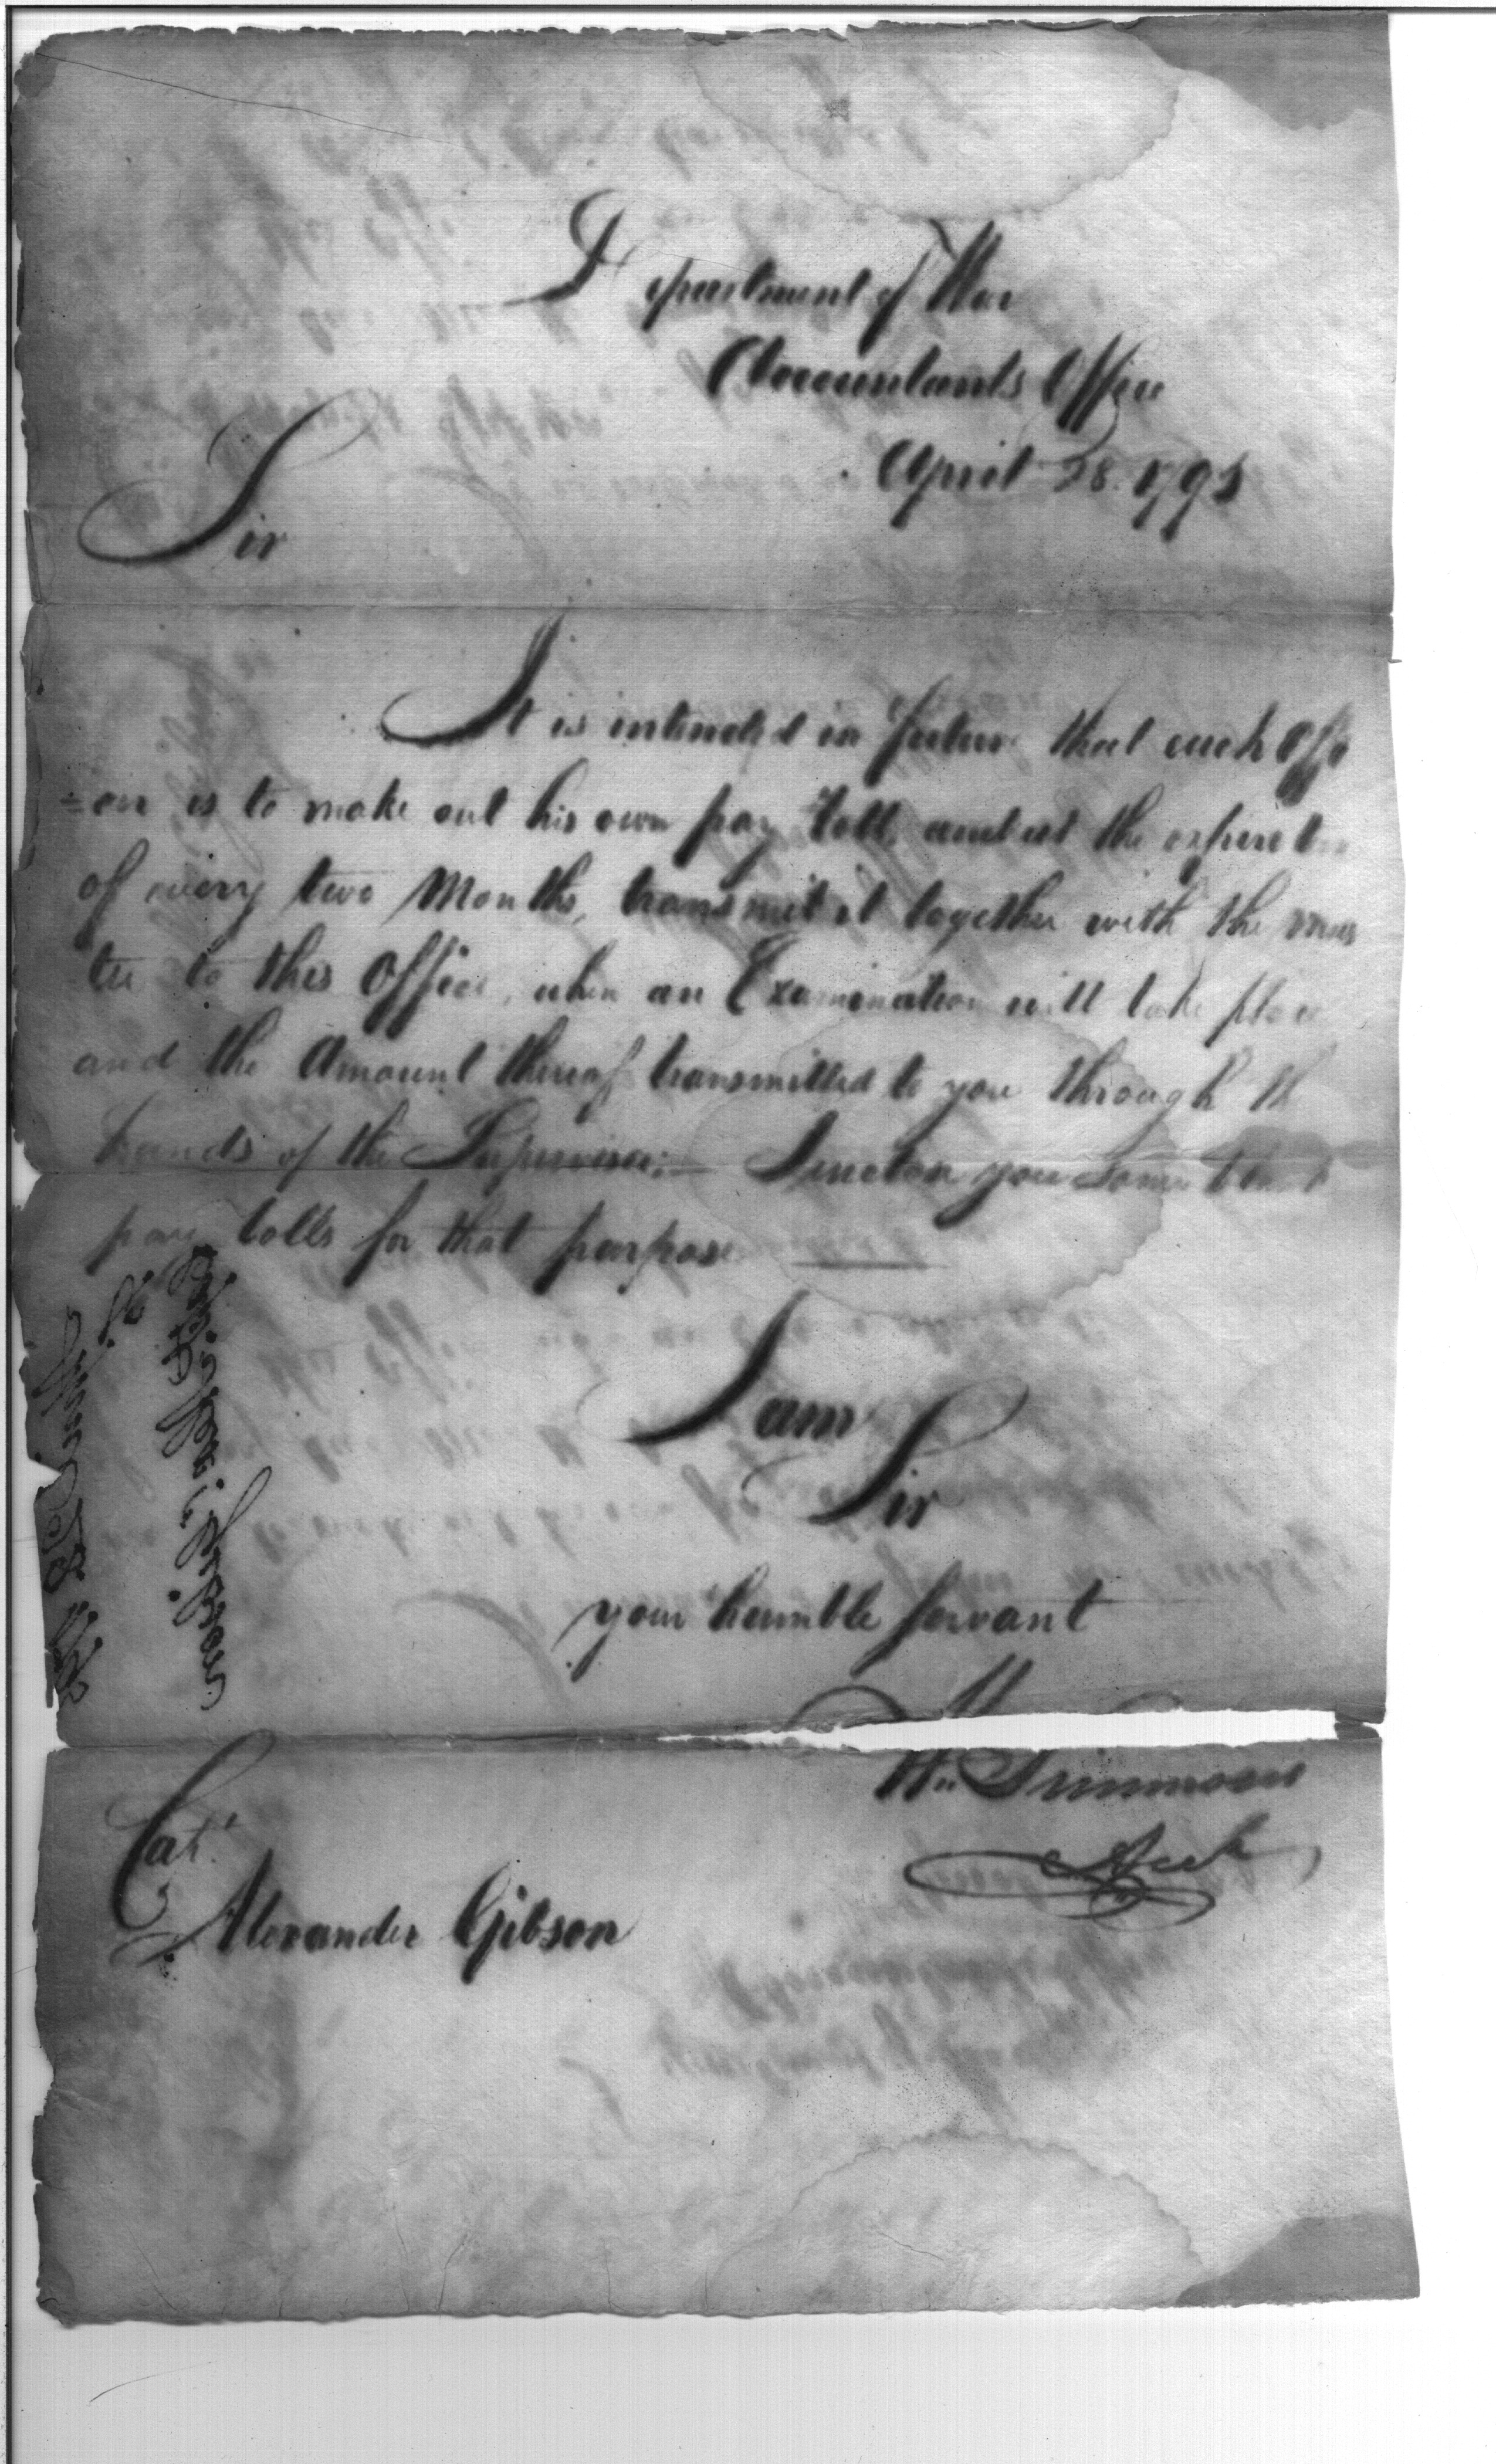 Department of War
Accountants Office
April 28. 1795
Sir
It is intended in future that each Offi
=cer is to make out his own pay Roll, and at the expiration
of every two Months, transmit it together with the mus
ter to this Office, when an Examination will take place
and the Amount thereof transmitted to you through the
hands of the Supervisor; Inclose you some blank
pay rolls for that purpose
I am
Sir
your humble servant
Wm Simmons
Acct
Capt
Alexander Gibson